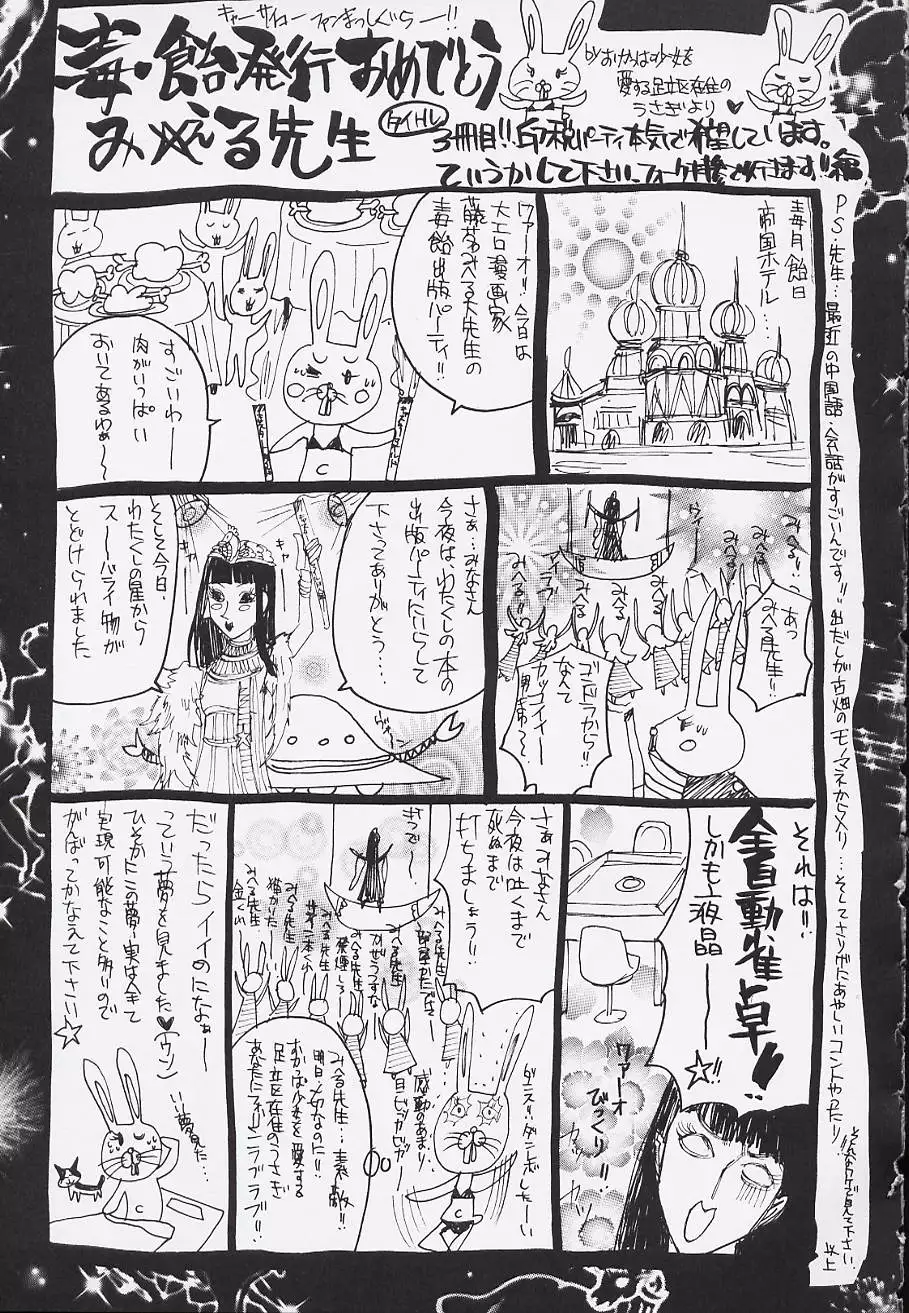 キャーサイコーファンまっしぐらー!!
毒・飴発行おめでとう
みえる先生
タイトル
byおかっぱ少女を
愛する足立区在住の
うさぎより♥
3冊目!!印税パーティ本気で希望しています。
ていうかして下さい、フォーク持参で行きます!!編
毒月飴日
帝国ホテル…
ワァーオ!!今日は
大エロ漫画家
みへる大先生の
毒飴出版パーティ!!
すごいわー
肉がいっぱい
おいてあるわぁ〜
みへる!!
みへる!
あっ
みへる先生!!
ゴンドラから!!
なんて
カッコイイー
さぁ…みなさん
今夜は、わたくしの本の
出版パーティにいらして
下さってありがとう…
キャー
キャー
そして今日、
わたくしの星から
スーバライ物が
とどけられました
それは!!
全自動雀卓!!
しかも液晶ーー☆
ワァーオ
びっくり!!
さぁみなさん
今夜は吐くまで
死ぬまで
打ちましょう!!
みへる先生
みへる先生
みへる先生
金くれ
感動のあまり
目ピッカピッカー
みへる先生…素敵!!
明日〆切なのに!!
おかっぱ少女を愛する
足立区在住のうさぎ
ラブラブ!!
だったらイイのになぁー
っていう夢を見ました♥(ウソ)
ひそかにこの夢…実は全て
実現可能なこと多いので
がんばってかなえて下さい☆
夢見た…
PS・先生…最近の中国語・会話がすごいんです!!出だしが古畑のモノマネから入り…そしてさりげにあやしいコントやったり!!
以上